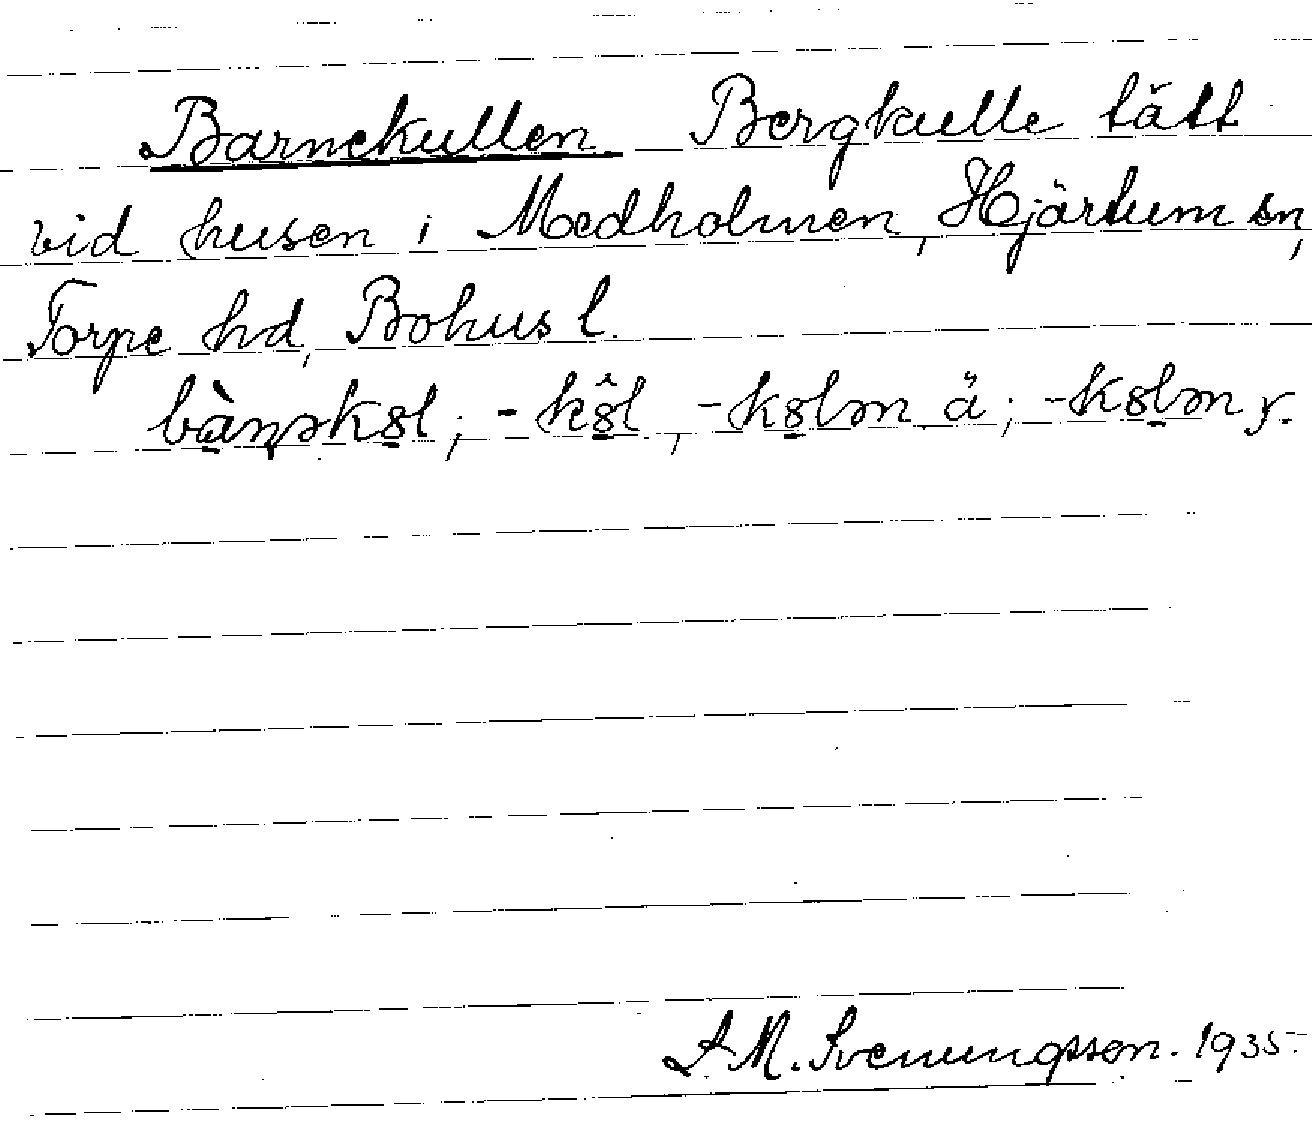 Barnekullen Bergkulle tätt
vid husen i Medholmen, Hjärtum sn,
Torpe hd, Bohus l.
bànək8l; -k8̂l, -k8lən ä; -k8lən y.
L. M. Svenungsson. 1935